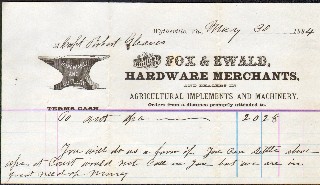 Wytheville, Va., May 30 1884
Robert Gleaves
FOX & EWALD,
HARDWARE MERCHANTS,
AND DEALERS IN
AGRICULTURAL IMPLEMENTS AND MACHINERY.
Orders from a distance promptly attended to.
TERMS CASH.
To acct 20 28
You will do us a favor if you can settle above
at Court would not call on you but we are in
great need of money